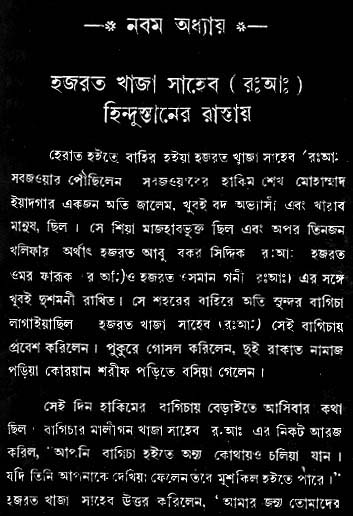 —* নবম অধ্যায় *—
হজরত খাজা সাহেব ( রঃআঃ )
হিন্দুস্তানের রাস্তায়
হেরাত হইতে বাহির হইয়া হজরত খুাজা সাহেব 'রঃআঃ
সবজওয়ার পৌছিলেন সবজওয়ারের হাকিম শেখ মোহাম্মাদ
ইয়াদগার একজন অতি জালেম, খুবই বদ অভ্যাসী এবং খারাব
মানুষ, ছিল। সে শিয়া মাজহাবভুক্ত ছিল এবং অপর তিনজন
খলিফার অর্থাৎ হজরত আবু বকর সিদ্দিক রঃআঃ হজরত
ওমর ফারুক (র আঃ)ও হজরত ওসমান গানী রঃআঃ) এর সঙ্গে
খুবই দুশমনী রাখিত। সে শহরের বাহিরে অতি সুন্দর বাগিচা
লাগাইয়াছিল হজরত খাজা সাহেব (রঃআঃ) সেই বাগিচায়
প্রবেশ করিলেন। পুকুরে গোসল করিলেন, দুই রাকাত নামাজ
পড়িয়া কোরয়ান শরীফ পড়িতে বসিয়া গেলেন।
সেই দিন হাকিমের বাগিচায় বেড়াইতে আসিবার কথা
ছিল বাগিচার মালীগন খাজা সাহেব রঃআঃ এর নিকট আরজ
করিল, "আপনি বাগিচা হইতে অন্য কোথায়ও চলিয়া যান।
যদি তিনি আপনাকে দেখিয়া ফেলেন তবে মুশকিল হইতে পারে।"
হজরত খাজা সাহেব উত্তর করিলেন, 'আমার জন্য তোমাদের